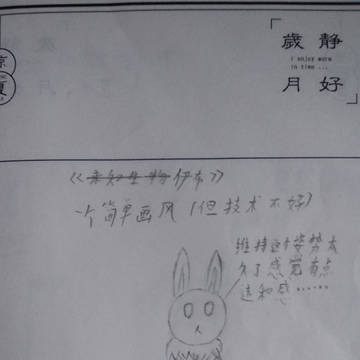 涼
夏
歲 静
i enjoy more
in time ...
月 好
《未知生物伊布》
个简单画风(但技术不好)
维持这个姿势太
久了感觉有点
违和感……